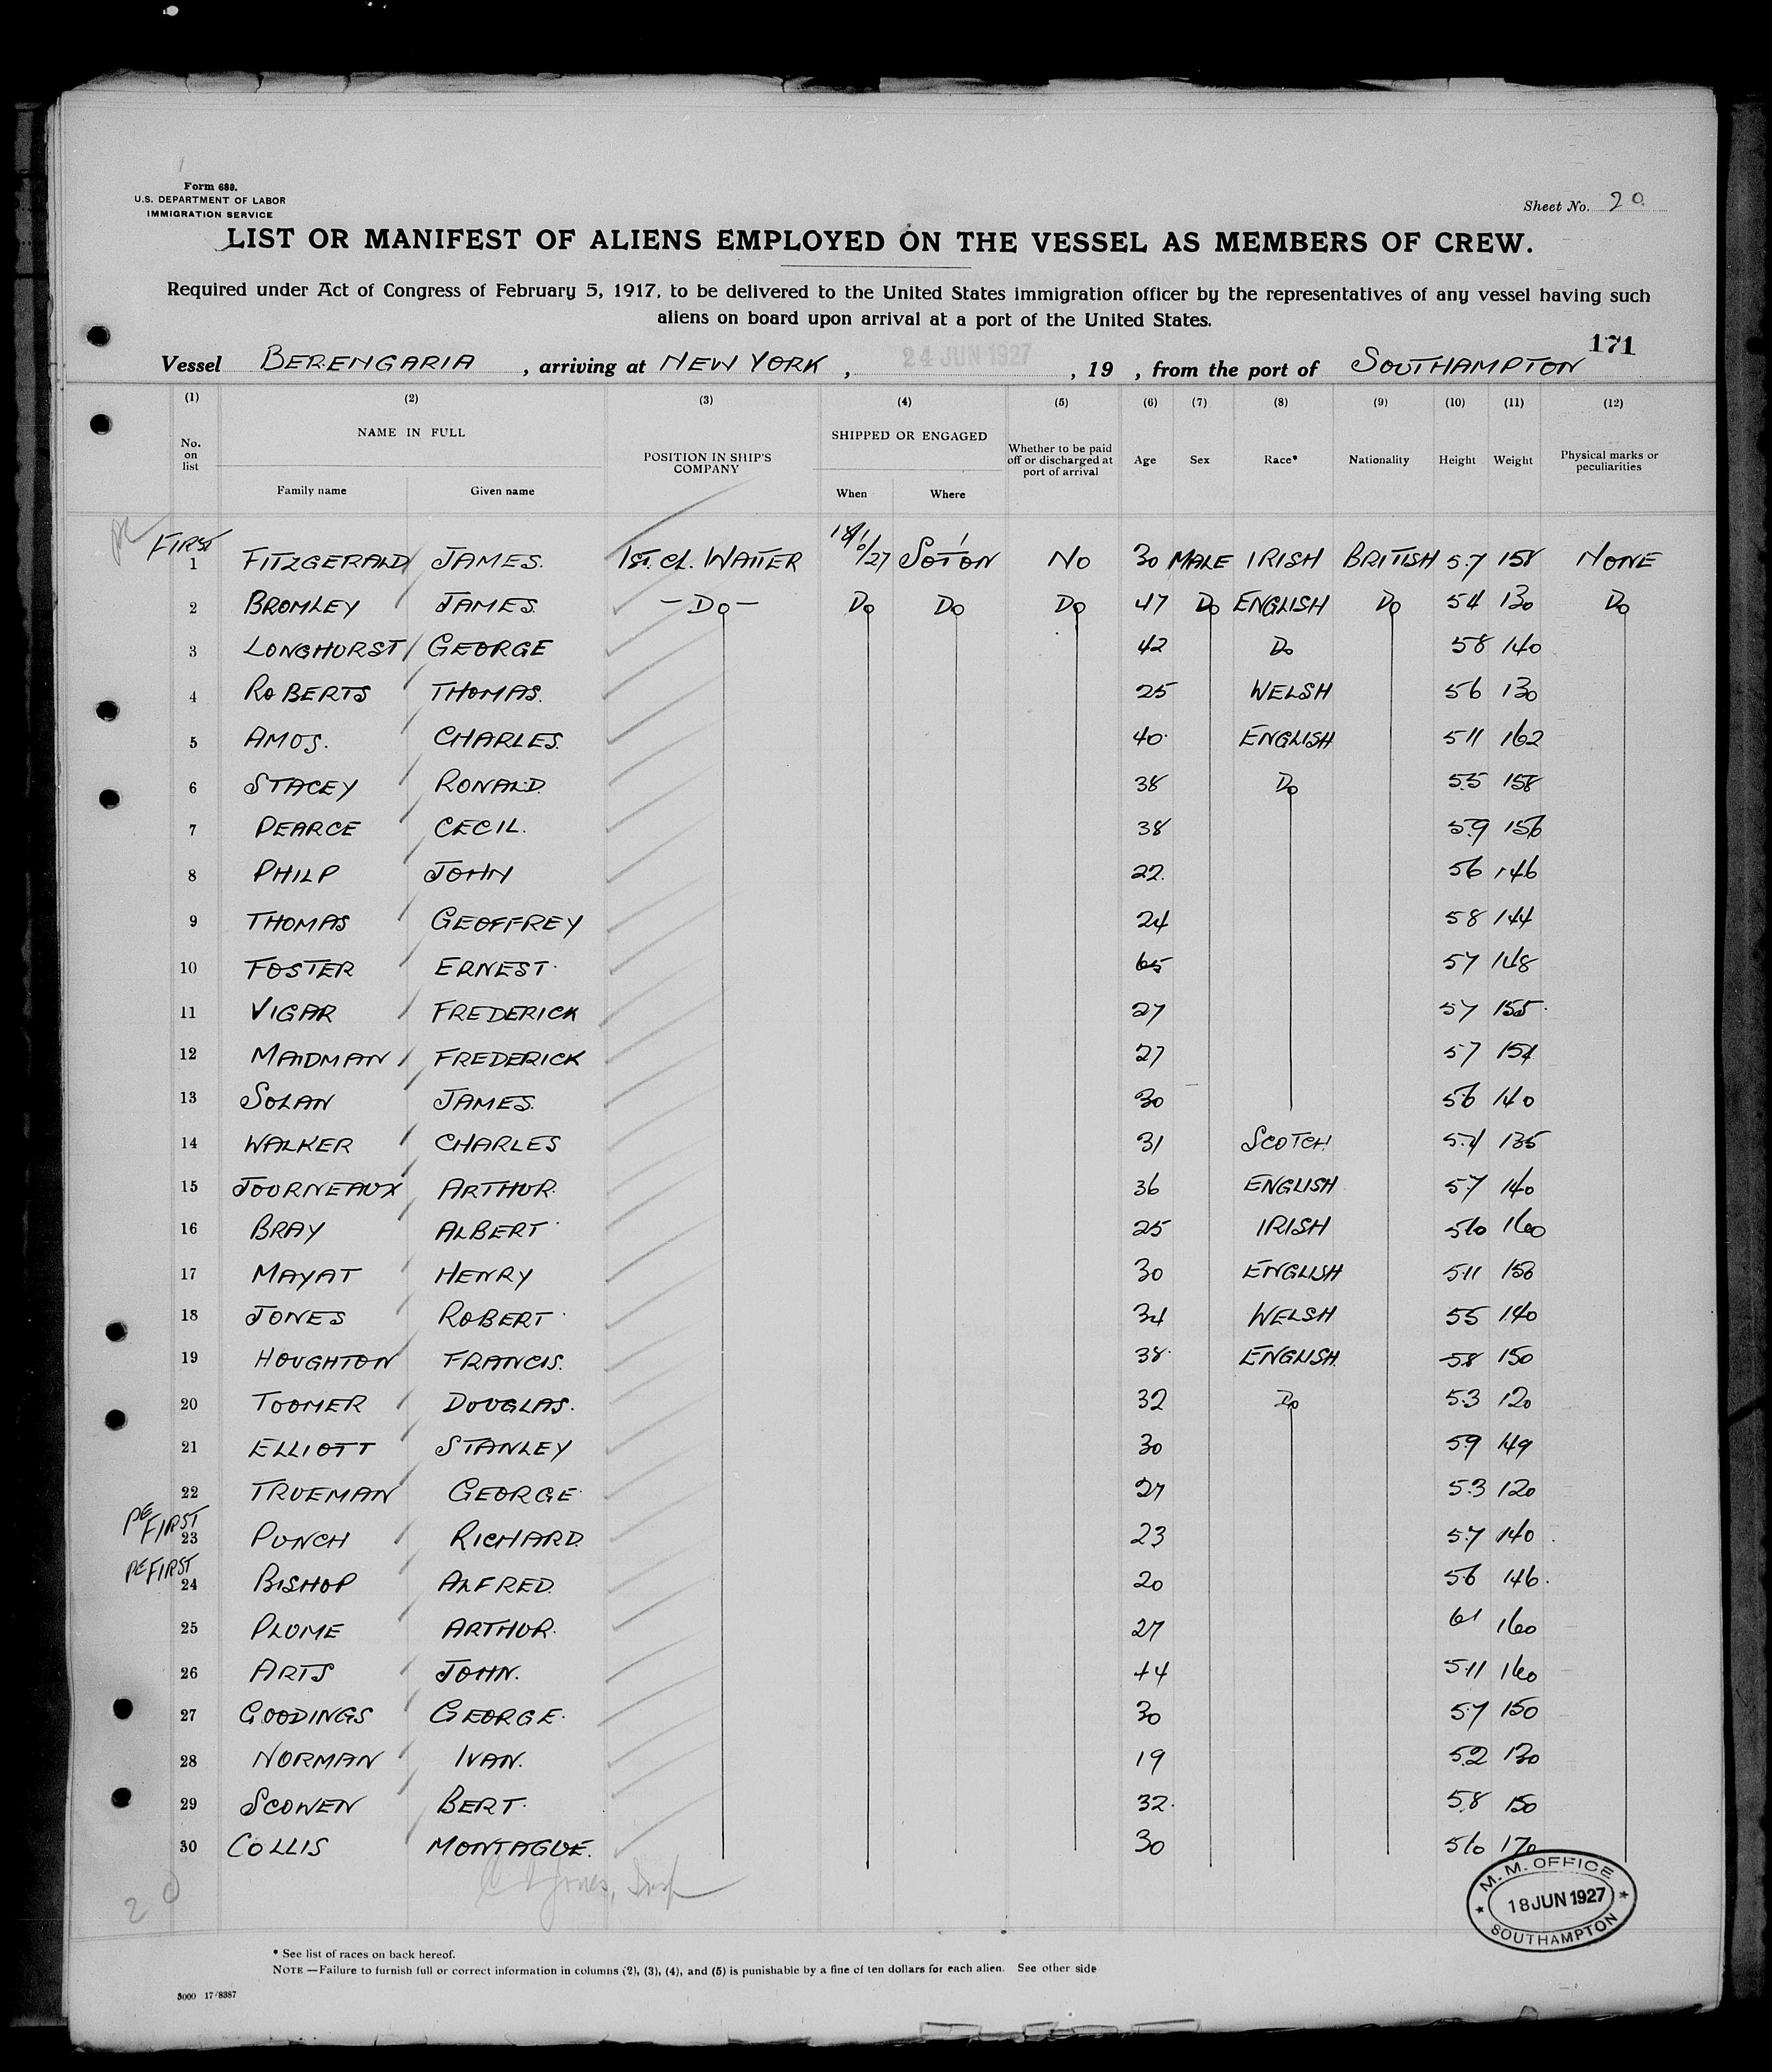 Form 689.
U.S. DEPARTMENT OF LABOR
IMMIGRATION SERVICE
Sheet No. 20.
LIST OR MANIFEST OF ALIENS EMPLOYED ON THE VESSEL AS MEMBERS OF CREW.
Required under Act of Congress of February 5, 1917, to be delivered to the United States immigration officer by the representatives of any vessel having such
aliens on board upon arrival at a port of the United States.
171
Vessel BERENGARIA, arriving at NEW YORK, 24 JUN 1927, 19 , from the port of SOUTHAMPTON
(1) (2) (3) (4) (5) (6) (7) (8) (9) (10) (11) (12)
No. on list NAME IN FULL Family name Given name POSITION IN SHIP'S COMPANY SHIPPED OR ENGAGED When Where Whether to be paid off or discharged at port of arrival Age Sex Race* Nationality Height Weight Physical marks or peculiarities
FIRST
1 FITZGERALD JAMES. 1ST. CL. WAITER 18/6/27 SO'TON NO 30 MALE IRISH BRITISH 5.7 158 NONE
2 BROMLEY JAMES. -DO- DO DO DO 47 DO ENGLISH DO 54 130 DO
3 LONGHURST GEORGE 42 DO 58 140
4 ROBERTS THOMAS. 25 WELSH 56 130
5 AMOS. CHARLES. 40 ENGLISH 511 162
6 STACEY RONALD. 38 DO 5.5 158
7 PEARCE CECIL. 38 5.9 156
8 PHILP JOHN 22. 56 146
9 THOMAS GEOFFREY 24 58 144
10 FOSTER ERNEST. 65 57 148
11 VIGAR FREDERICK 27 57 155.
12 MAIDMAN FREDERICK 27 57 154
13 SOLAN JAMES. 30 56 140
14 WALKER CHARLES 31 SCOTCH 5.4 135
15 JOURNEAUX ARTHUR. 36 ENGLISH 5.7 140
16 BRAY ALBERT 25 IRISH 510 160
17 MAYAT HENRY 30 ENGLISH 511 156
18 JONES ROBERT 34 WELSH 55 140
19 HOUGHTON FRANCIS. 38 ENGLISH. 58 150
20 TOOMER DOUGLAS. 32 DO 5.3 120
21 ELLIOTT STANLEY 30 59 149
22 TRUEMAN GEORGE 27 5.3 120
PE FIRST
23 PUNCH RICHARD. 23 5.7 140
PE FIRST
24 BISHOP ALFRED. 20 56 146.
25 PLUME ARTHUR. 27 61 160
26 ARTS JOHN. 44 5.11 160
27 GOODINGS GEORGE. 30 57 150
28 NORMAN IVAN. 19 5.2 130
29 SCOWEN BERT. 32. 5.8 150
30 COLLIS MONTAGUE. 30 510 170
20
M. M. OFFICE
18 JUN 1927
SOUTHAMPTON
* See list of races on back hereof.
NOTE —Failure to furnish full or correct information in columns (2), (3), (4), and (5) is punishable by a fine of ten dollars for each alien. See other side
5000 17/8387